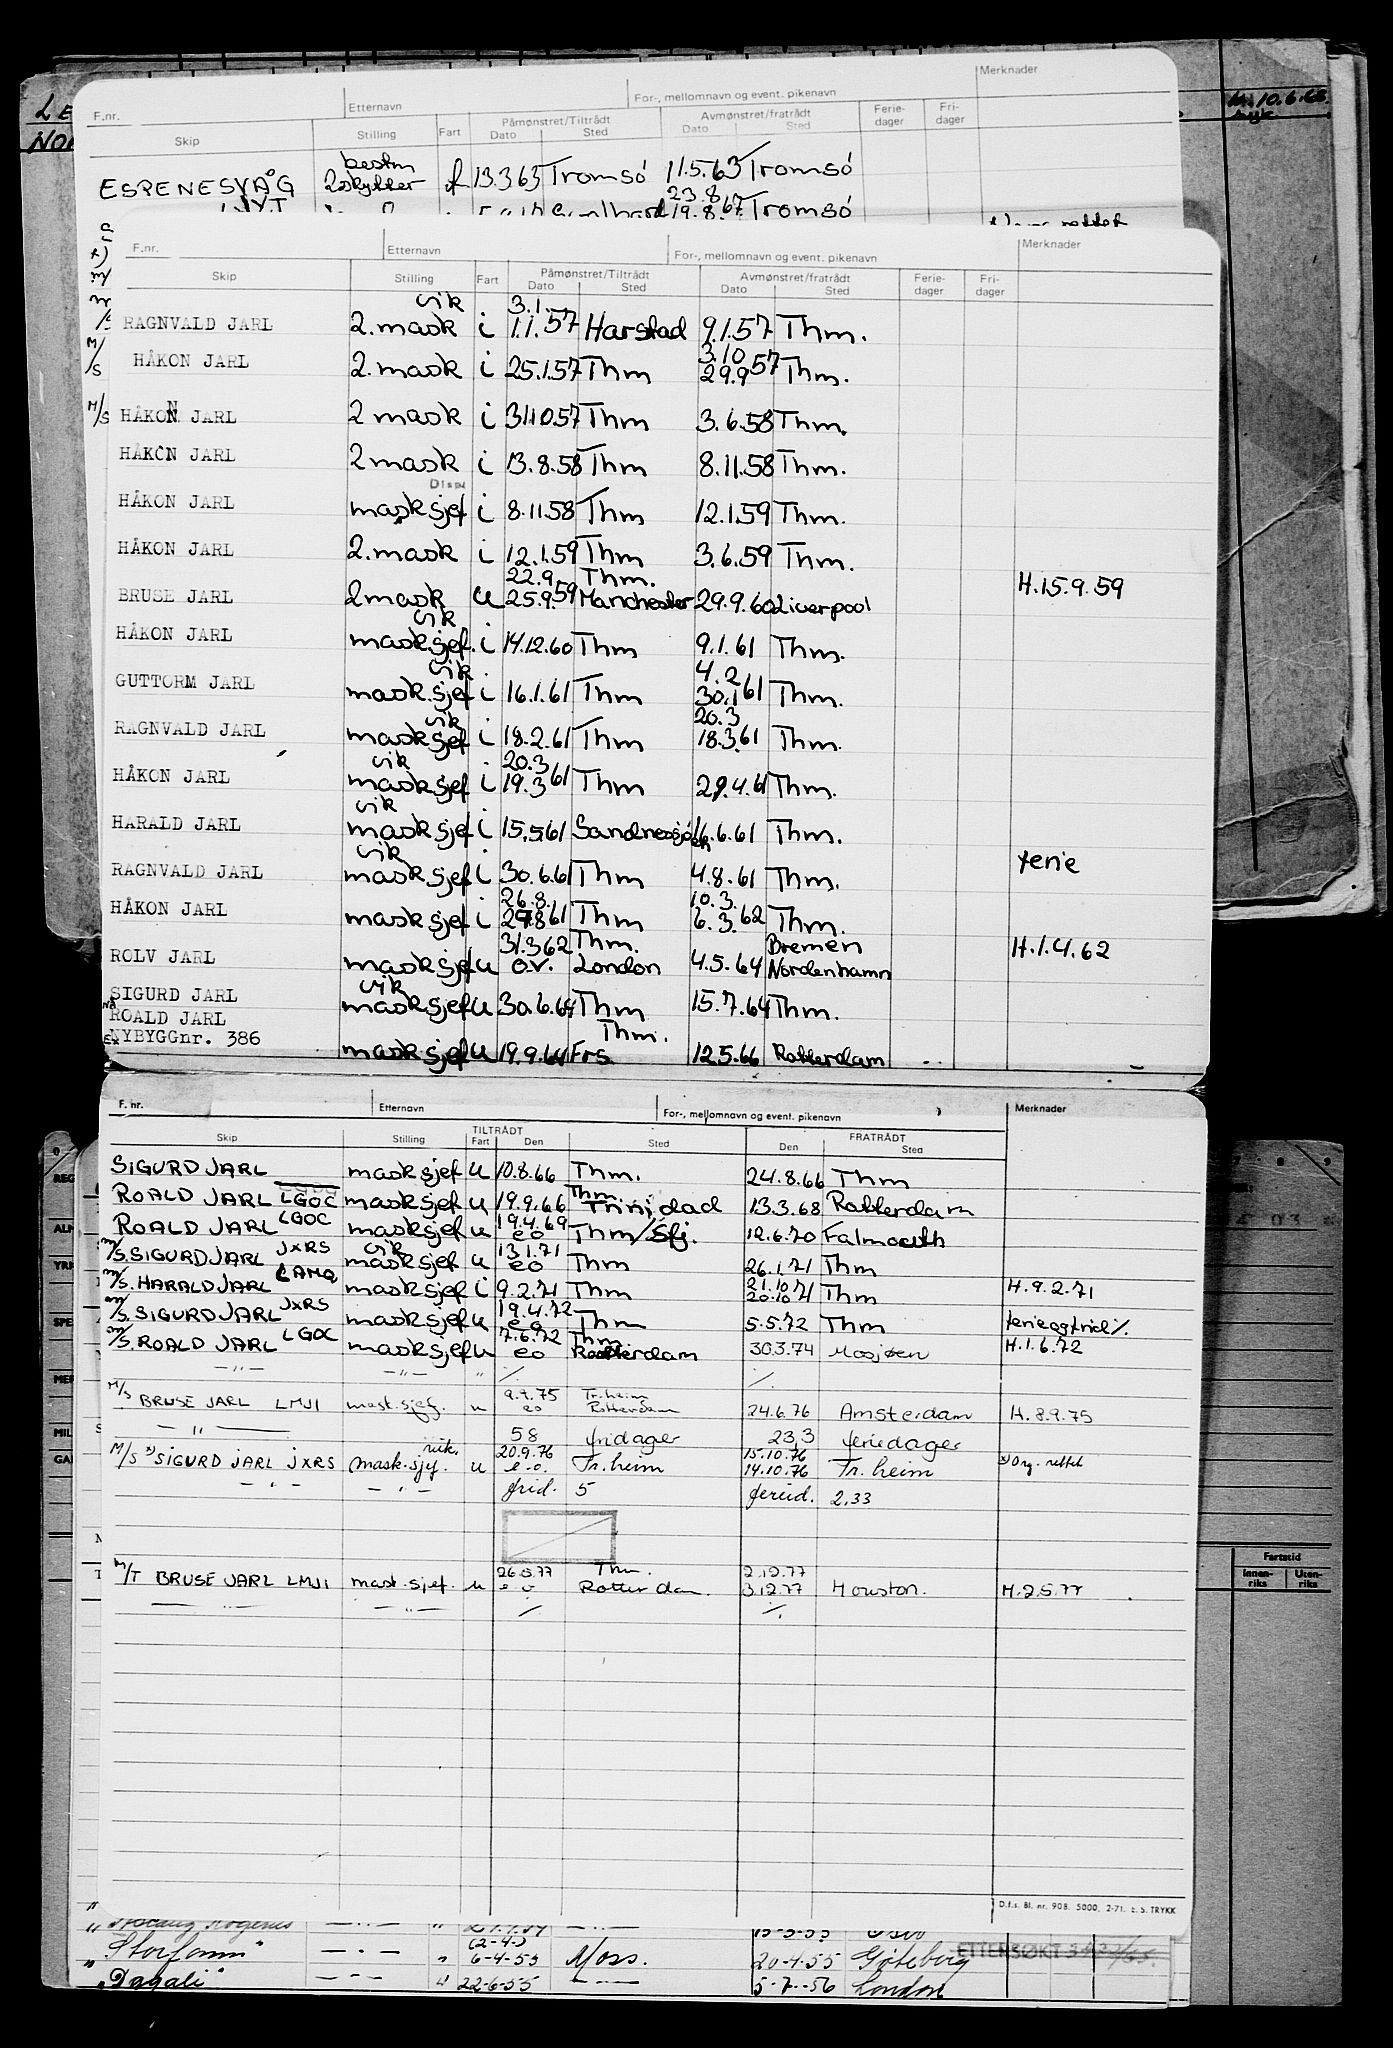 Merknader
For-, mellomnavn og event. pikenavn
F.nr. Etternavn
Skip Stilling Fart Påmønstret/Tiltrådt Dato Sted Avmønstret/fratrådt Dato Sted Ferie-dager Fri-dager
bestm
ESPENESVÅG 2skytter f 13.3.63 Tromsö 11.5.63 Tromsö
23.8
19.8.67 Tromsö
F.nr. Etternavn For-, mellomnavn og event. pikenavn Merknader
Skip Stilling Fart Påmønstret/Tiltrådt Dato Sted Avmønstret/fratrådt Dato Sted Ferie-dager Fri-dager
vik 3.1.
RAGNVALD JARL 2. mask i 1.1.57 Harstad 9.1.57 Thm.
3.10
M/S HÅKON JARL 2. mask i 25.1.57 Thm 29.9 57 Thm.
M/S HÅKON JARL 2 mask i 31.10.57 Thm 3.6.58 Thm.
HÅKON JARL 2 mask i 13.8.58 Thm 8.11.58 Thm.
Disp
HÅKON JARL masksjef i 8.11.58 Thm 12.1.59 Thm.
HÅKON JARL 2. mask i 12.1.59 Thm 3.6.59 Thm.
22.9 Thm.
BRUSE JARL 2mask u 25.9.59 Manchester 29.9.60 Liverpool H.15.9.59
vik
HÅKON JARL masksjef. i 14.12.60 Thm 9.1.61 Thm.
vik 4.2
GUTTORM JARL mask.sjef i 16.1.61 Thm 30.1 61 Thm.
vik 20.3
RAGNVALD JARL masksjef i 18.2.61 Thm 18.3.61 Thm.
vik 20.3
HÅKON JARL masksjef i 19.3 61 Thm 29.4.61 Thm.
vik
HARALD JARL masksjef i 15.5.61 Sandnessjöen 16.6.61 Thm.
vik
RAGNVALD JARL masksjef i 30.6.61 Thm 4.8.61 Thm. ferie
26.8. 10.3.
HÅKON JARL masksjef i 29.8.61 Thm 6.3.62 Thm.
31.3.62 Thm. Bremen
ROLV JARL masksjef u o.v. London 4.5.64 Nordenhamn H.1.4.62
vik
SIGURD JARL masksjef u 30.6.64 Thm 15.7.64 Thm.
ROALD JARL Thm.
NYBYGGnr. 386 masksjef u 19.9.64 Frs 12.5.66 Rotterdam
F. nr. Etternavn For-, mellomnavn og event. pikenavn Merknader
Skip Stilling TILTRÅDT Fart Den Sted FRATRÅDT Den Sted
SIGURD JARL masksjef u 10.8.66 Thm. 24.8.66 Thm
Thm.
ROALD JARL LGOC masksjef u 19.9.66 Trinidad 13.3.68 Rotterdam
19.4.69
ROALD JARL LGOC masksjef u eo Thm/Sfj. 12.6.70 Falmouth
vik 13.1.71
m/s. SIGURD JARL JXRS masksjef u eo Thm 26.1.71 Thm
21.10
m/s. HARALD JARL LAMQ masksjef i 9.2.71 Thm 20.10 71 Thm H.9.2.71
19.4.72
m/s. SIGURD JARL JXRS masksjef u eo Thm 5.5.72 Thm ferie og frid %.
7.6.72 Thm
m/s. ROALD JARL LGOC masksjef u eo Rotterdam 30.3.74 Mosjøen H.1.6.72
— " — — " — " /. /.
9.9.75 Tr.heim
M/S BRUSE JARL LMJI mask.sjef. u eo Rotterdam 24.6.76 Amsterdam H.8.9.75
— " — 58 fridager 23,3 feriedager
vik. 20.9.76 15.10.76
M/S x) SIGURD JARL JXRS mask.sjef. u e.o. Tr.heim 14.10.76 Tr.heim x) Org. rettet
— " — — " — frid. 5 feried. 2,33
26.5.77 Thm. 2.12.77
M/T BRUSE JARL LMJI mask.sjef. u e.o Rotterdam. 3.12.77 Houston. H.2.5.77
— " — — " — /. /.
D.f.s. Bl. nr. 908. 5000. 2-71. E. S. TRYKK
Fartstid
Innen-riks Uten-riks
" Storfonn" — " — " 6-4-55 Moss. 20-4-55 Göteborg ETTERSØKT
"Dagali" — " — " 22-6-55 — " — 5-7-56 London